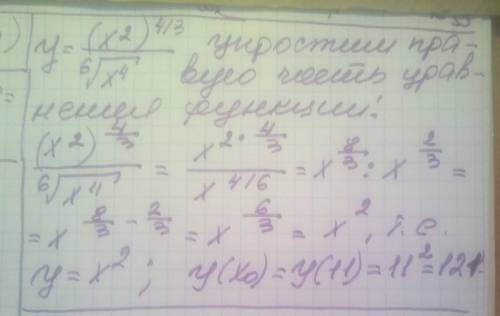 y = (x²)^{4/3} / ⁶√x⁴ упростим пра-
вую часть урав-
нения функции:
(x²)^{4/3} / ⁶√x⁴ = x^{2·4/3} / x^{4/6} = x^{8/3} : x^{2/3} =
= x^{8/3 - 2/3} = x^{6/3} = x², т.е.
y = x²; y(x₀) = y(11) = 11² = 121.